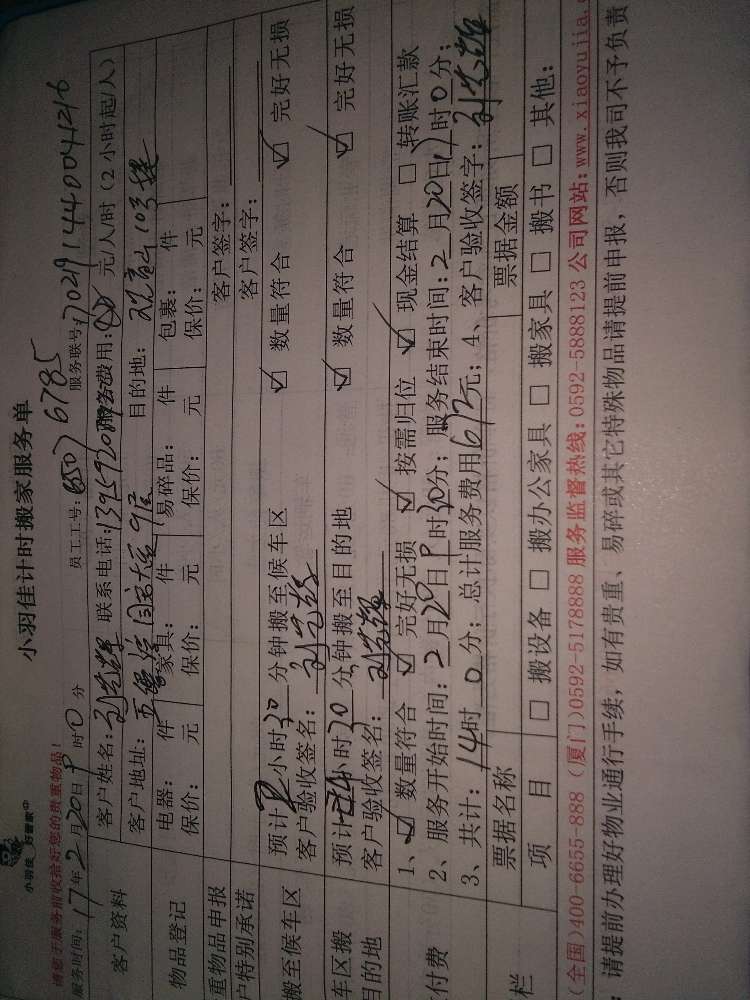 小羽佳 好管家
小羽佳计时搬家服务单
请您于服务前收拾好您的贵重物品！
服务时间：17年2月20日 时0分 员工工号：6507 6785 服务联号：70291440041216
客户资料 客户姓名： 联系电话： 服务费用： 元/人/时（2小时起/人）
客户地址： 目的地： 103
物品登记 电器： 件 家具： 件 易碎品： 件 包裹： 件
保价： 元 保价： 元 保价： 元 保价： 元
重物品申报 客户签字：
户特别承诺 客户签字：
搬至候车区 预计 小时30分钟搬至候车区 ☑ 数量符合 ☑ 完好无损
客户验收签名：
车区搬 预计 小时30分钟搬至目的地 ☑ 数量符合 ☑ 完好无损
目的地 客户验收签名：
付费 1、☑ 数量符合 ☑ 完好无损 ☑ 按需归位 ☑ 现金结算 □ 转账汇款
2、服务开始时间：2月20日 时30分；服务结束时间：2月20日 时0分；
3、共计：14时0分；总计服务费用672元；4、客户验收签字：
栏 票据名称 票据金额
项 目 □ 搬设备 □ 搬办公家具 □ 搬家具 □ 搬书 □ 其他：
(全国)400-6655-888 (厦门)0592-5178888 服务监督热线：0592-5888123 公司网站：www.xiaoyujia.
：请提前办理好物业通行手续，如有贵重、易碎或其它特殊物品请提前申报，否则我司不予负责